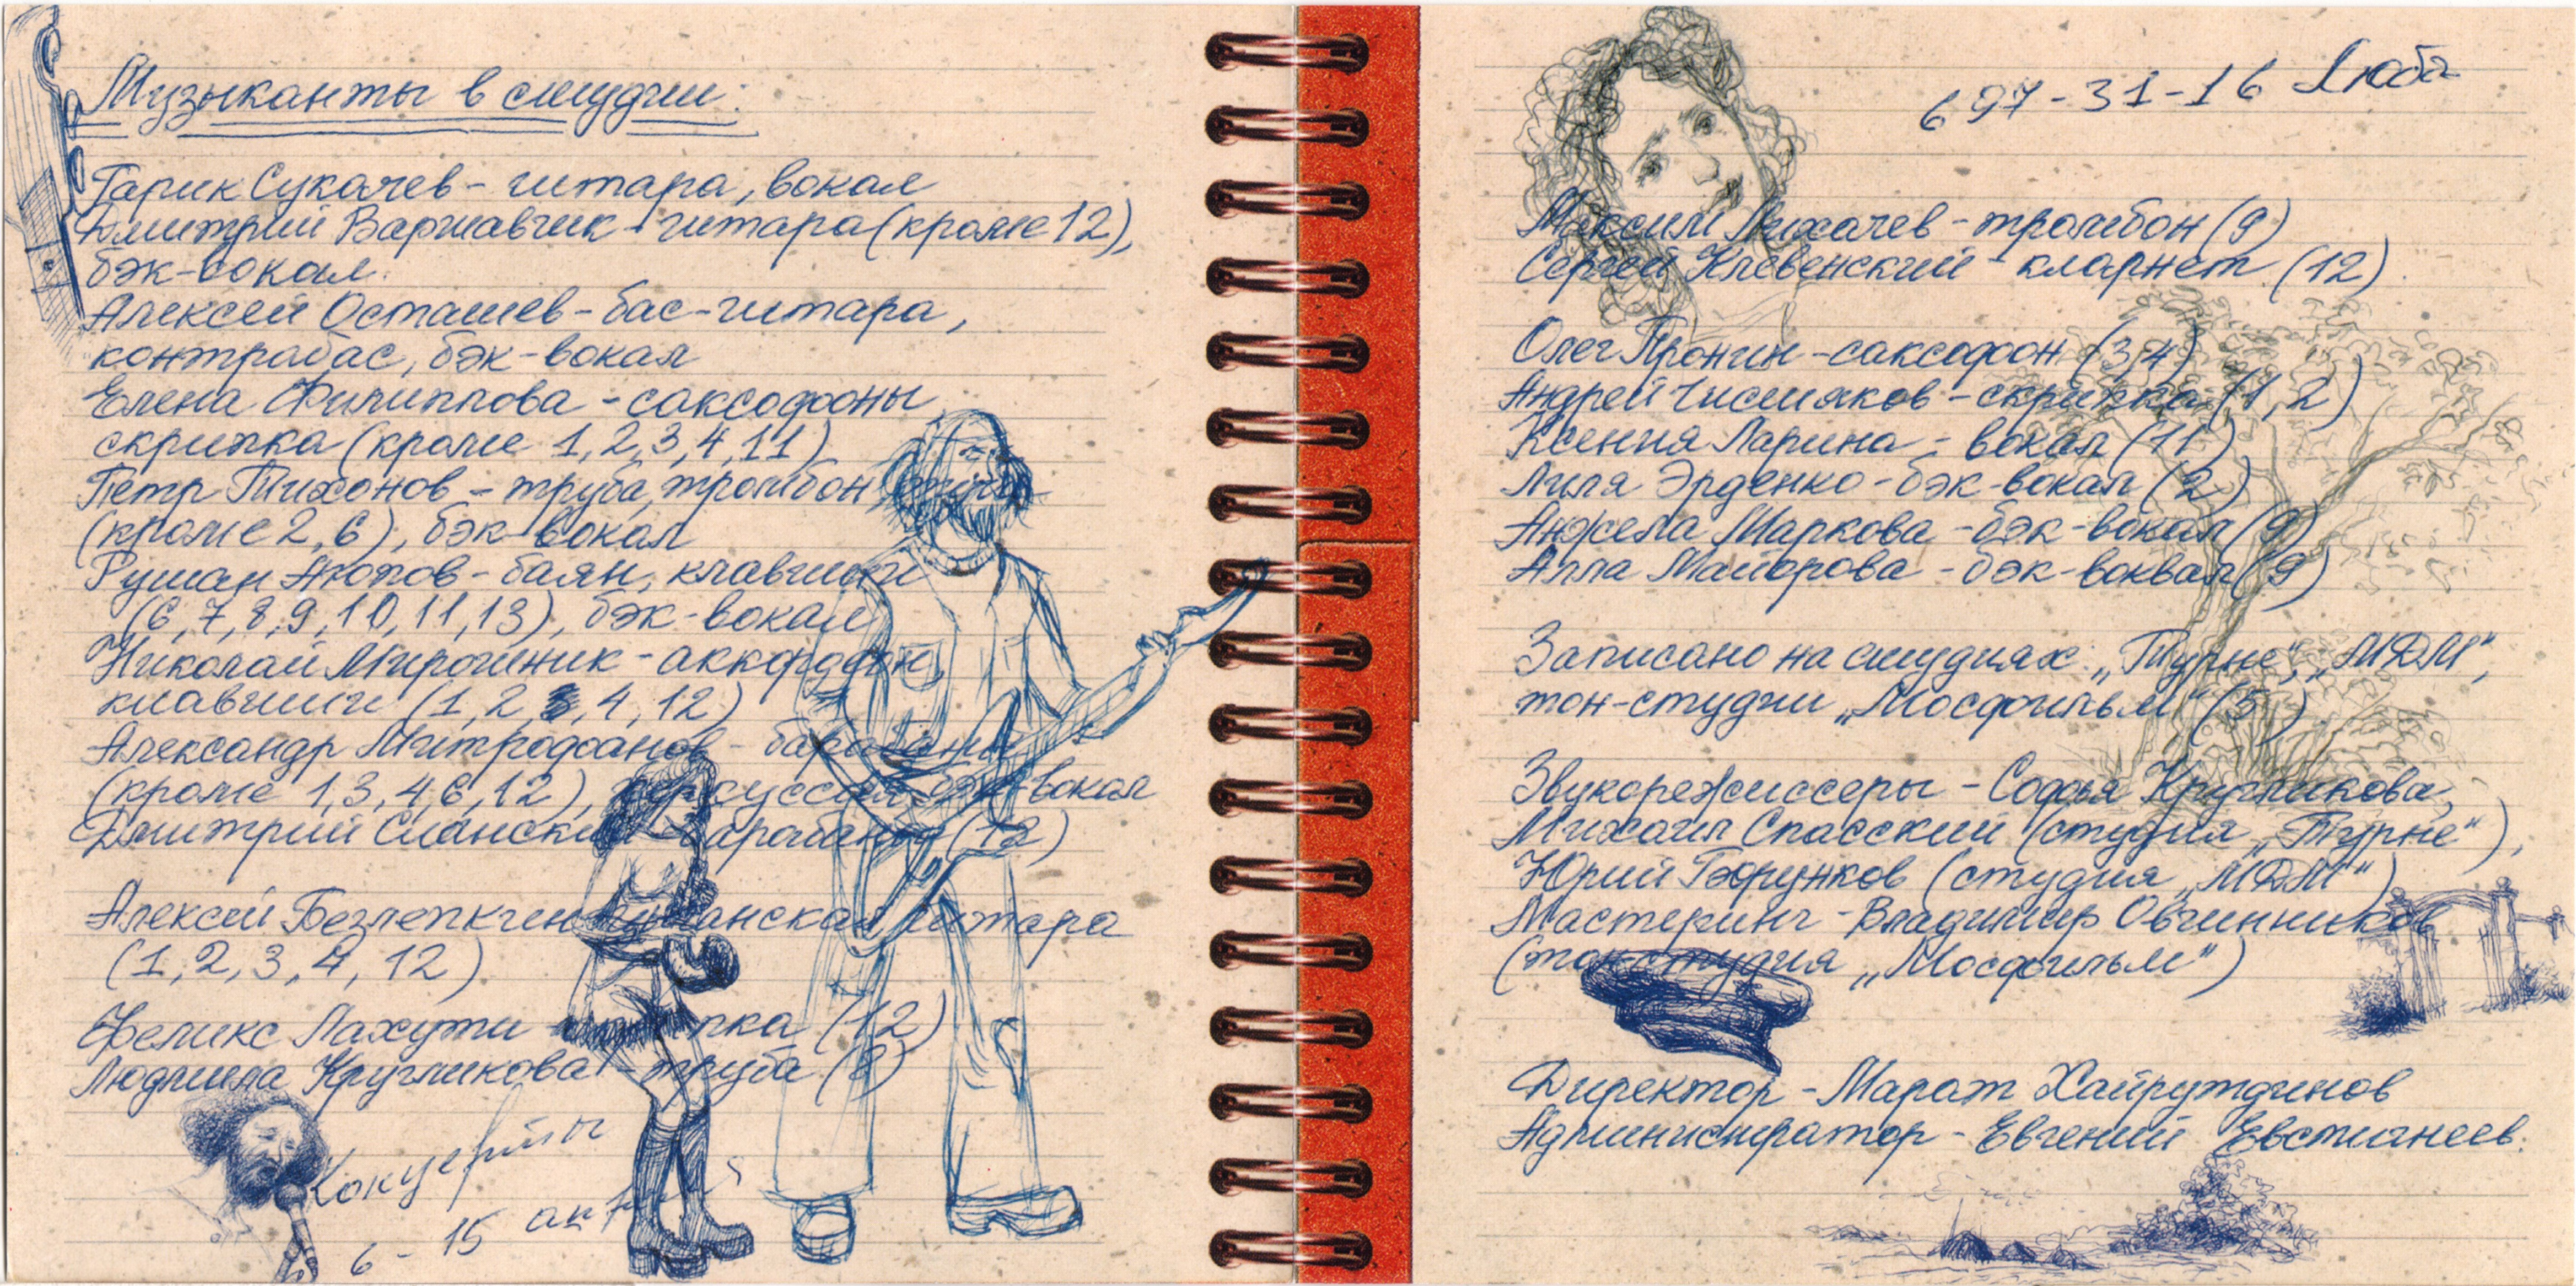 Музыканты в студии:
Гарик Сукачев - гитара, вокал
Дмитрий Варшавчик - гитара (кроме 12),
бэк-вокал.
Алексей Осташев - бас-гитара,
контрабас, бэк-вокал
Елена Филиппова - саксофоны
скрипка (кроме 1, 2, 3, 4, 11)
Петр Тихонов - труба, тромбон,
(кроме 2, 6), бэк-вокал
Рушан Аюпов - баян, клавиши
(6, 7, 8, 9, 10, 11, 13), бэк-вокал
Николай Мирошник - аккордеон,
клавиши (1, 2, 3, 4, 12)
Александр Митрофанов - барабаны
(кроме 1, 3, 4, 6, 12), перкуссия, бэк-вокал
Дмитрий Сланский - барабаны (12)
Алексей Безлепкин - испанская гитара
(1, 2, 3, 4, 12)
Феликс Лахути - скрипка (12)
Людмила Кругликова - труба (2)
Концерты
6 - 15
697-31-16 Люба
Максим Лихачев - тромбон (9)
Сергей Клевенский - кларнет (12).
Олег Пронин - саксофон (3, 4)
Андрей Чистяков - скрипка (1, 2)
Ксения Ларина - вокал (11)
Лиля Эрденко - бэк-вокал (2)
Анжела Маркова - бэк-вокал (9)
Алла Майорова - бэк-воквал (9)
Записано на студиях: „Турне“, „МДМ“,
тон-студии „Мосфильм“ (5)
Звукорежиссеры - Софья Кругликова,
Михаил Спасский (студия „Турне“),
Юрий Бобрунков (студия „МДМ“)
Мастеринг - Владимир Овчинников
(тон-студия „Мосфильм“)
Директор - Марат Хайрутдинов
Администратор - Евгений Евстигнеев.